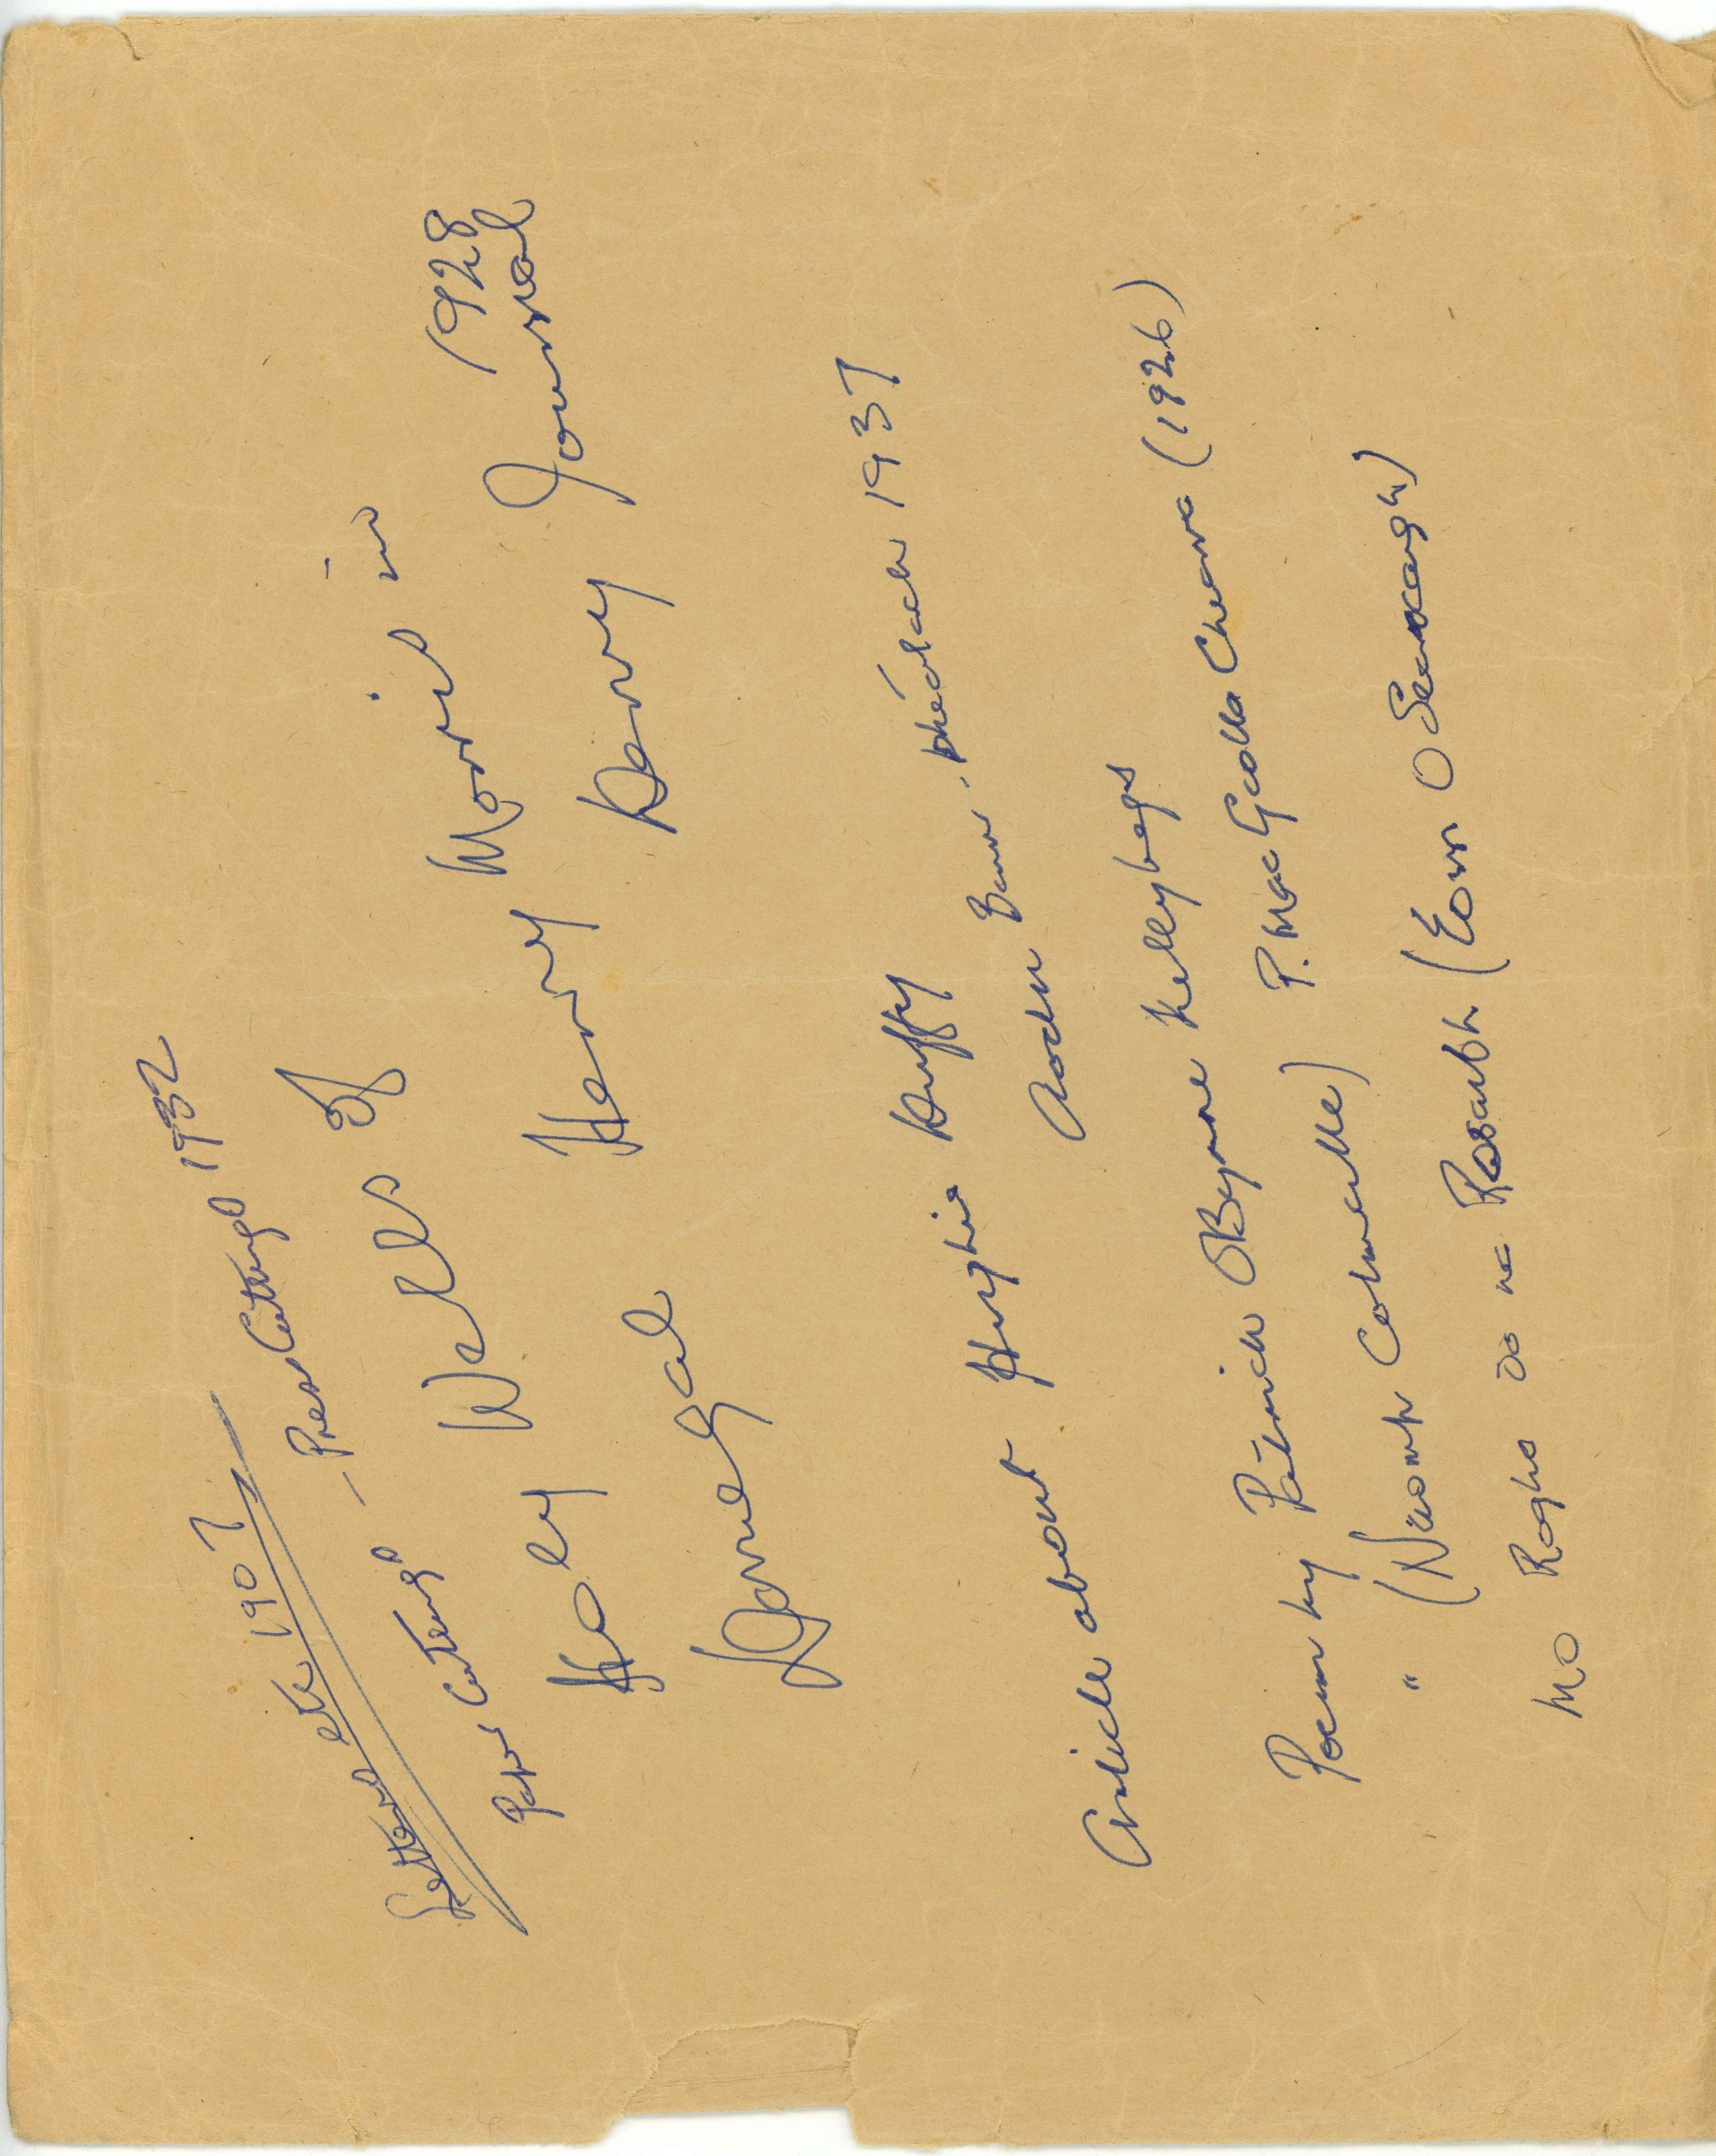 Letters etc 1907
Paper Cuttings – Press Cuttings 1932
Holy Wells of
Donegal Henry Morris in
1928
Derry Journal
Article about Hughie Duffy
Aodh Beann-bhéalach 1937
Poem by Patrick OByrne Kellybegs
" (Naomh Colmcille) P. Mac Giolla Chearra (1926)
Mo Rogha do na Rosaibh (Eoin O Searcaigh)